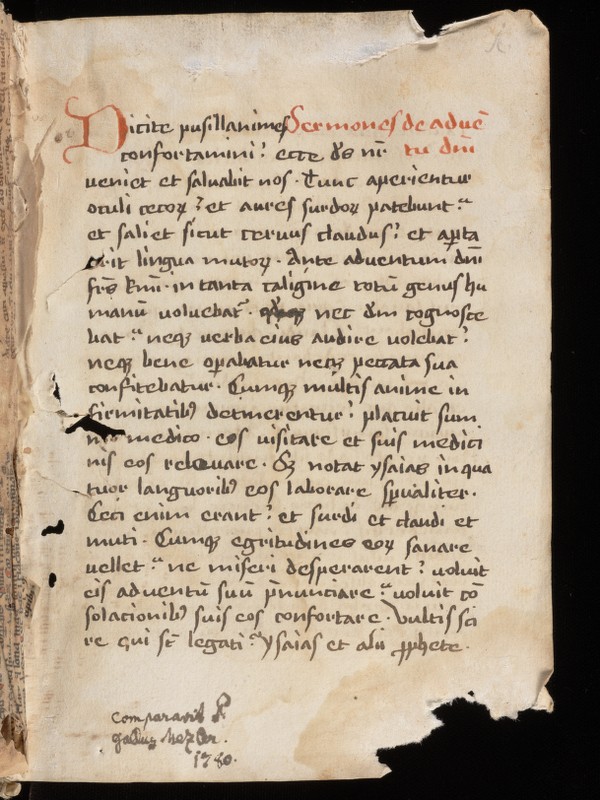 Dicite pusillanimes Sermones de aduē
confortamini? ecce ds nr̄ tu dnī
ueniet et saluabit nos. Tunc aperientur
oculi cecoꝝ? et aures surdoꝝ patebunt.
et saliet sicut ceruus claudus? et aꝑta
erit lingua mutoꝝ. Ante aduentum dnī
frs̄ kmī. in tanta caligine totū genus hu
manū uoluebat᷑. nec dm̄ cognosce
bat. neqꝫ uerba eius audire uolebat?
neqꝫ bene oꝑabatur neqꝫ peccata sua
confitebatur. Cumqꝫ multis anime in
firmitatibꝫ detinerentur? placuit sum
mo medico. eos uisitare et suis medici
nis eos releuare. Sꝫ notat ysaias in qua
tuor languoribꝫ eos laborare spūaliter.
Ceci enim erant? et surdi et claudi et
muti. Cumqꝫ egritudines eoꝝ sanare
uellet. ne miseri desperarent? uoluit
eis aduentū suū p̄nunciare. uoluit cō
solacionibꝫ suis eos confortare. Vultis sci
re qui st̄ legati? ysaias et alii ꝓphete.
Comparavit P.
Gallus Mezler.
1780.